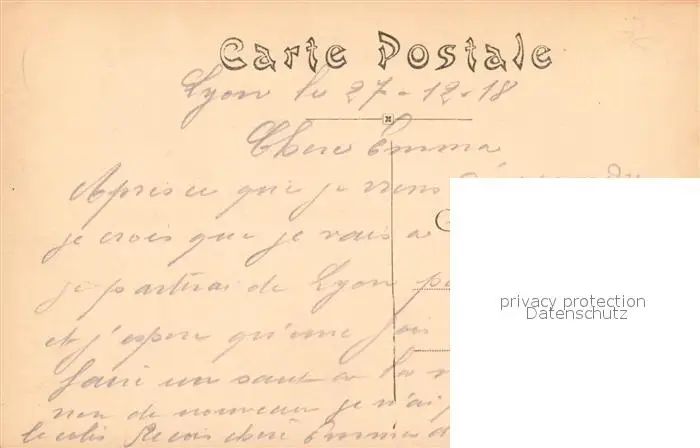 Carte Postale
Lyon le 27-12-18
Chere Emma
Apris ce que je viens
je crois que je vais a
je partirai de Lyon
et j'espere qu'une fois
faire un saut a la
rien de nouveau je n'ai
le colis Recois chere Emma
privacy protection
Datenschutz